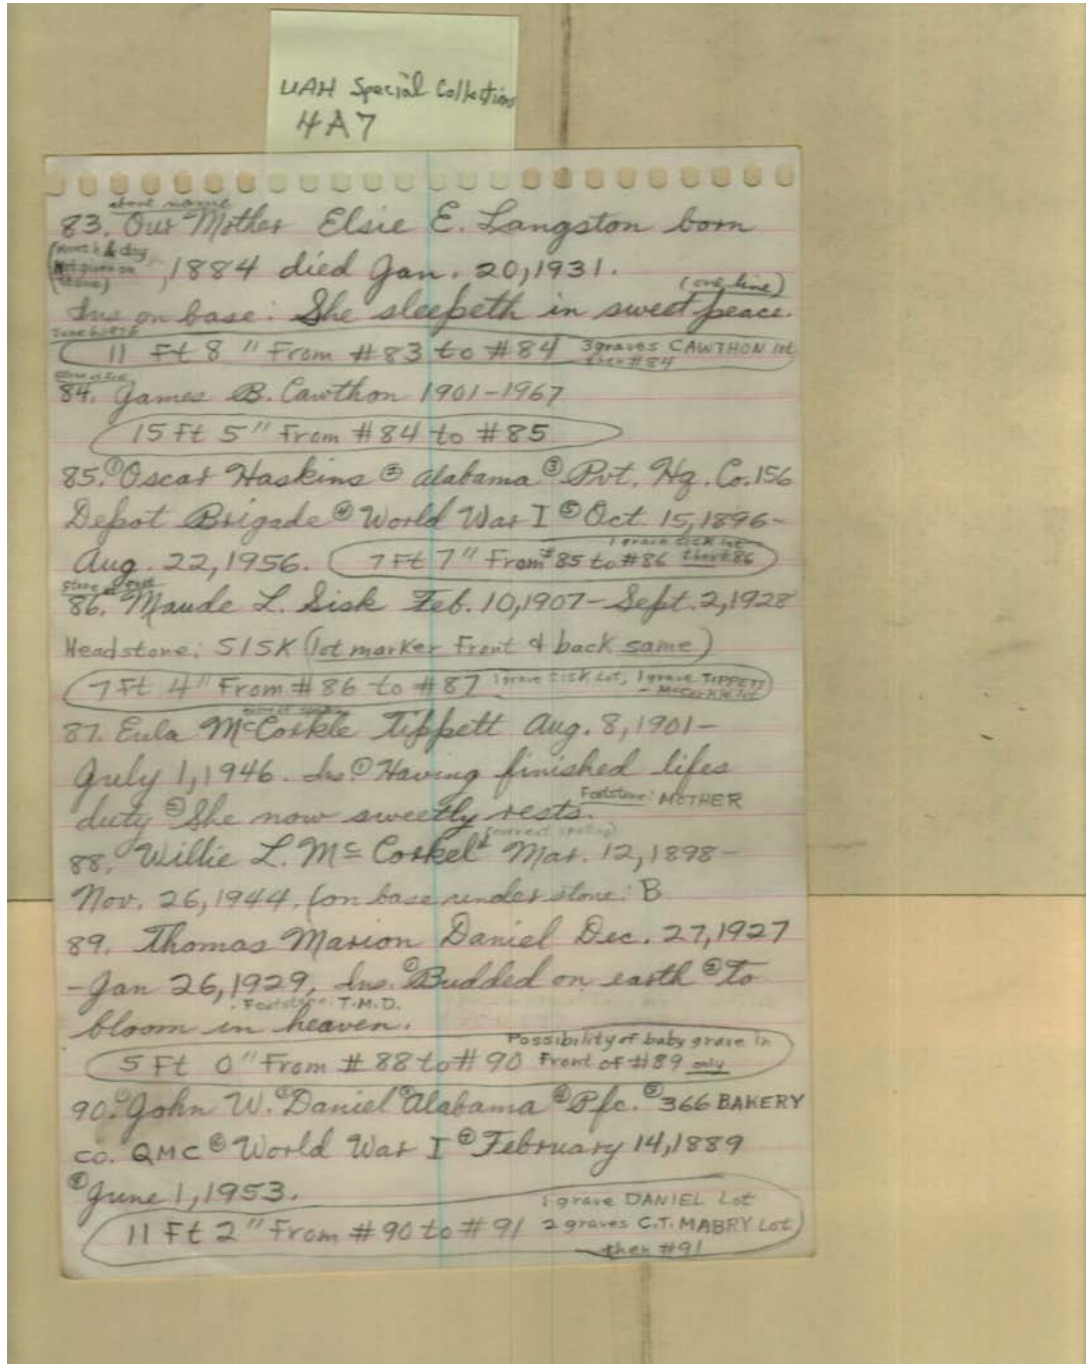 UAH Special Collections
4A7
above name
83. Our Mother Elsie E. Langston born
(month & day
not given on
stone)
, 1884 died Jan. 20, 1931.
(one line)
Ins on base: She sleepeth in sweet peace.
11 Ft 8" From #83 to #84 3 graves CAWTHON lot
then #84
84. James B. Cawthon 1901-1967
15 Ft 5" From #84 to #85
85. ① Oscar Haskins ② Alabama ③ Pvt. Hq. Co. 156
Depot Brigade ④ World War I ⑤ Oct. 15, 1896-
Aug. 22, 1956. 7 Ft 7" From #85 to #86 1 grave SISK lot
then #86
86. Maude L. Sisk Feb. 10, 1907-Sept. 2, 1928
Headstone: SISK (lot marker Front & back same)
7 Ft 4" From #86 to #87 1 grave SISK Lot, 1 grave TIPPETT
- McCorkle lot
correct spelling
87. Eula McCorkle Tippett Aug. 8, 1901-
July 1, 1946. Ins. ① Having finished lifes
duty ② She now sweetly rests. Footstone: MOTHER
(correct spelling)
88. Willie L. Mc Corkel Mar. 12, 1898-
Nov. 26, 1944. (on base under stone: B
89. Thomas Marion Daniel Dec. 27, 1927
-Jan 26, 1929, Ins. ① Budded on earth ② To
Footstone: T.M.D.
bloom in heaven.
5 Ft 0" From #88 to #90 Possibility of baby grave in
Front of #89 only
90. ① John W. ② Daniel ③ Alabama ④ Pfc. ⑤ 366 BAKERY
CO. QMC ⑥ World War I ⑦ February 14, 1889
⑧ June 1, 1953.
11 Ft 2" From #90 to #91 1 grave DANIEL Lot
2 graves C.T. MABRY Lot
then #91